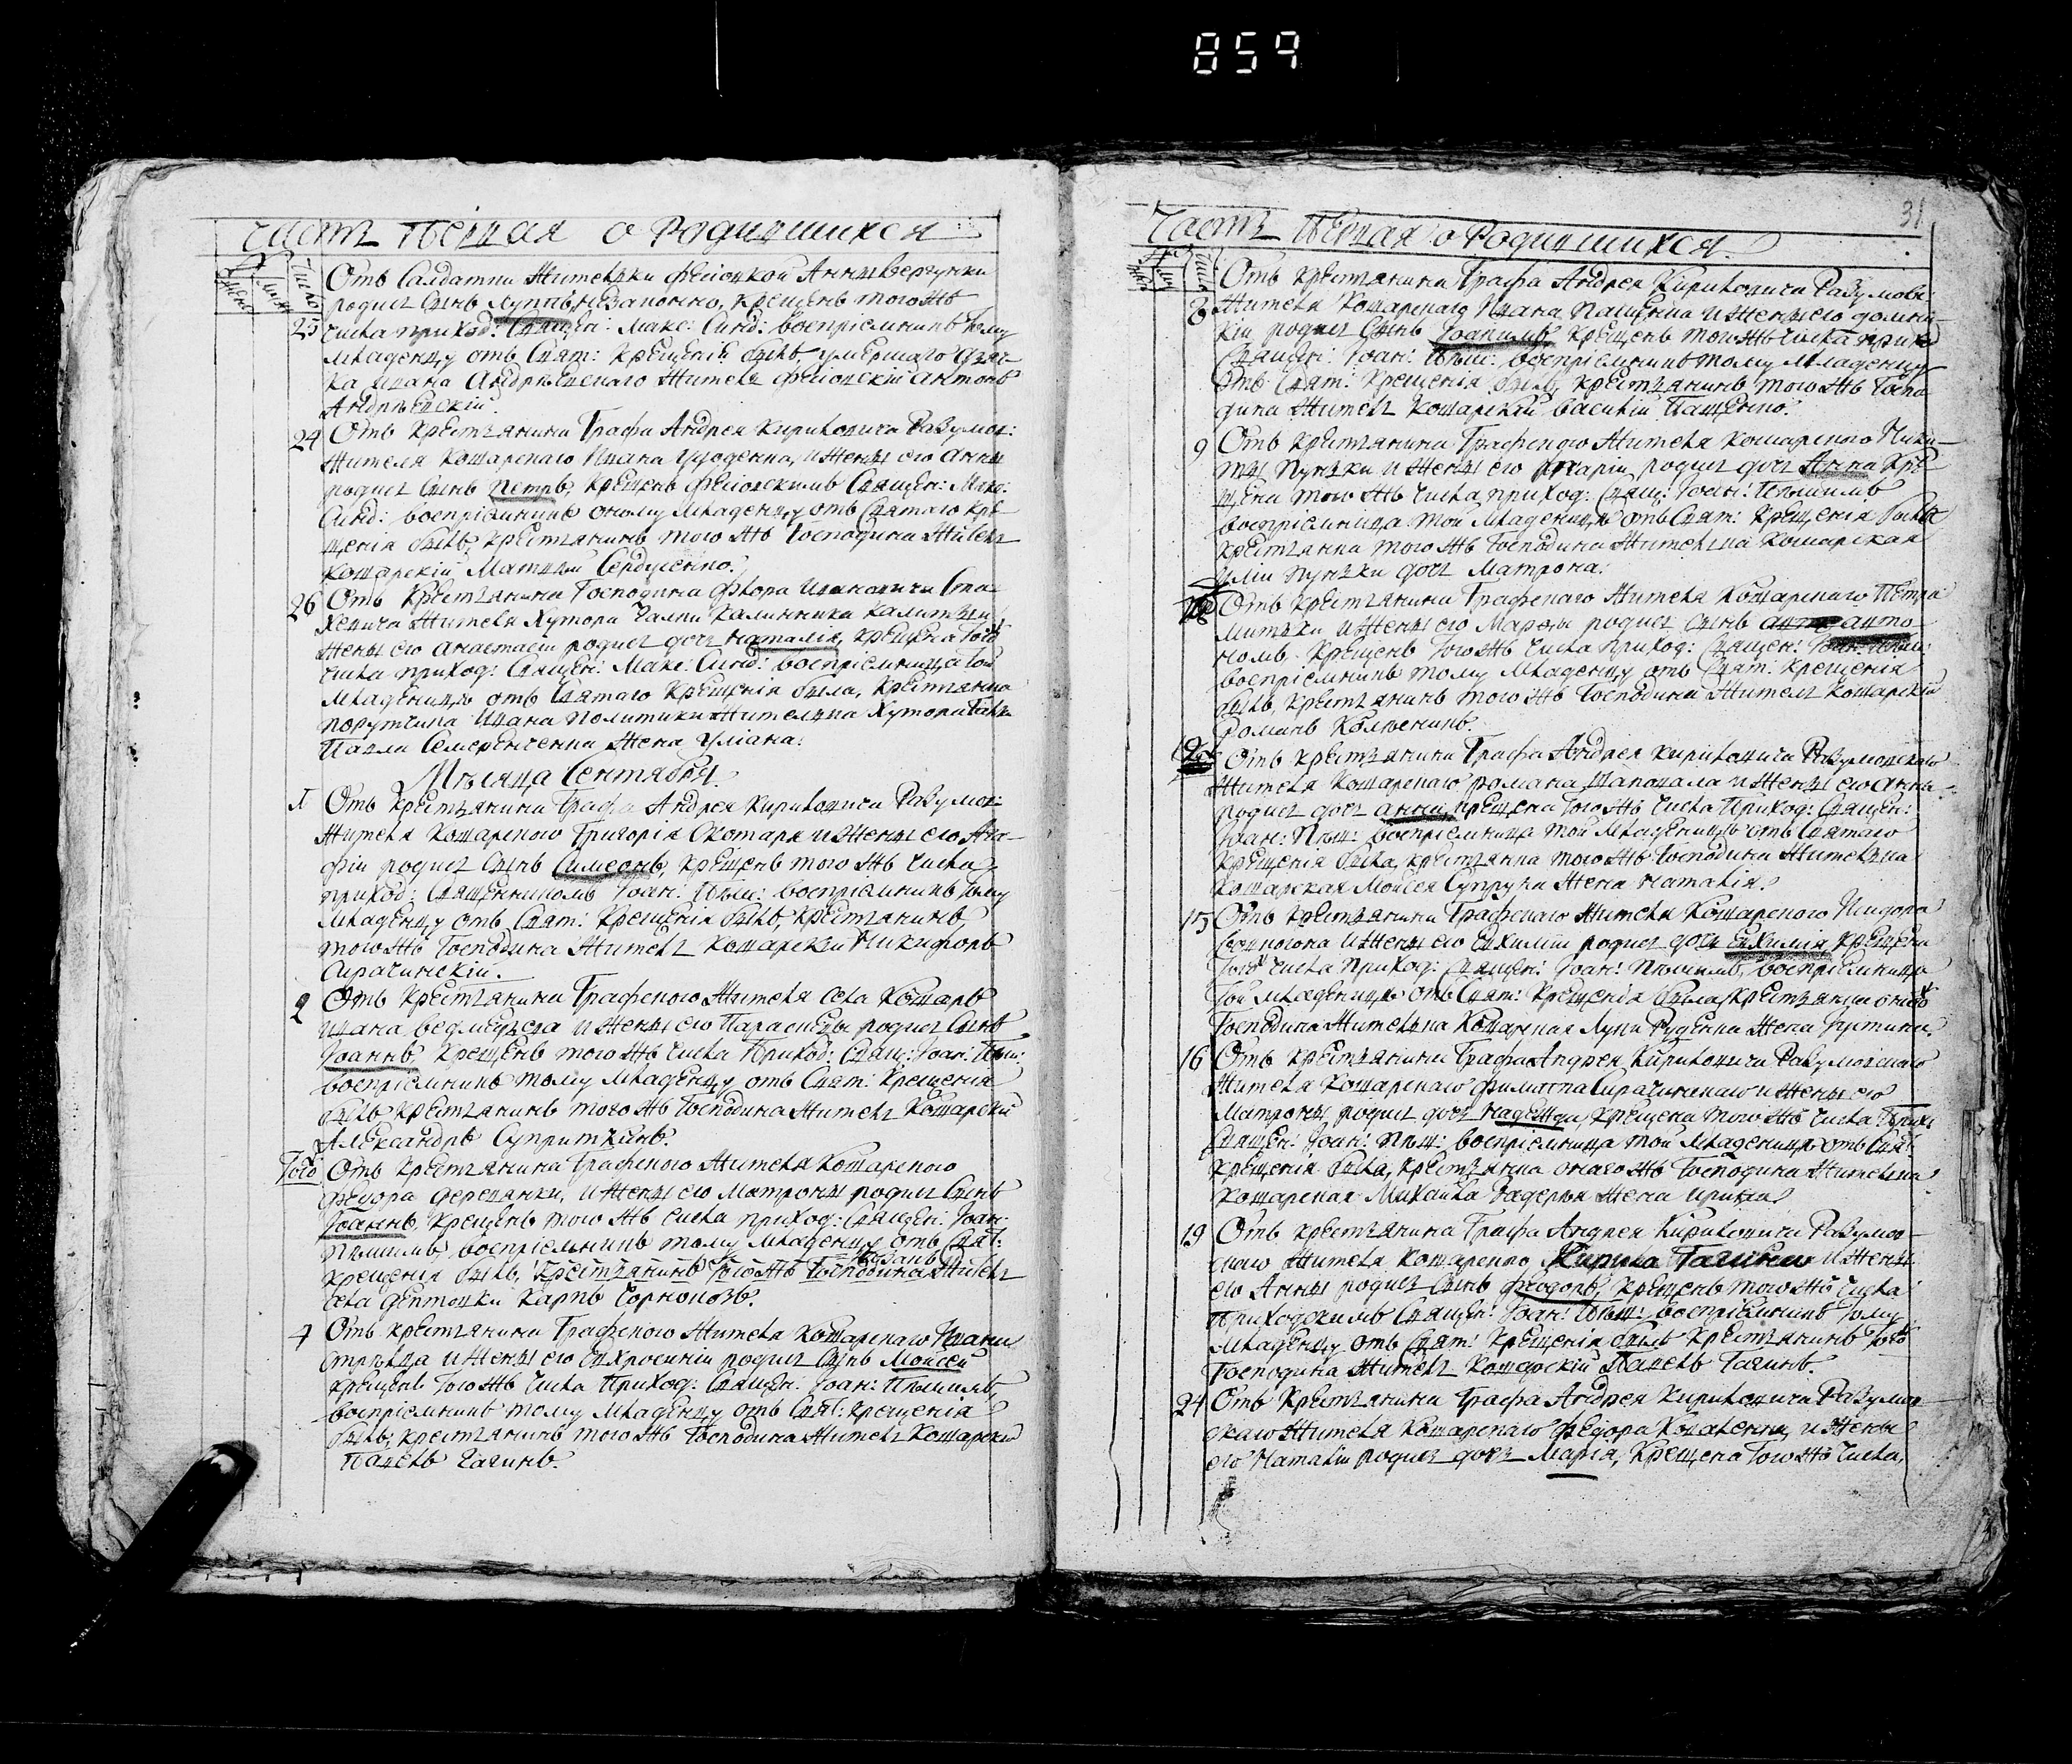 859
Часть Первая о Родившихся
Число
23
Отъ Салдатки Жителки Фесіовкой Анны Вергунки
родися Сынъ Луппъ, незаконно, Крещенъ того жъ
числа приход: Священ: Макс: Синд: воспріемникъ тому
младенцу отъ Свят: Крещенія былъ умершаго дзяч-
ка Ивана Андріевскаго Житель Фесіовскій Антонъ
Андріевскій.
24
Отъ Крестьянина Графа Андрея Кириловича Разумов:
Жителя Кошарскаго Ивана и жены его Анны
родися Сынъ Петръ, Крещенъ Фесіовскимъ Священ: Макс:
Синд: воспріемникъ оному младенцу отъ Святаго Кре-
щенія былъ, Крестьянинъ того жъ Господина Житель
Кошарскій Матвій Сердученко.
26
Отъ Крестьянина Господина Ивановича
Жителя Хутора Калинника и
жены его Анастасіи родися дочь Наталія, Крещена того
числа приход: Священ: Макс: Синд: воспріемница той
младеницѣ отъ Святаго Крещенія была, Крестьянка
порутчика Ивана Политики Жителька Хутора
Павла Семеренченка жена Уліана.
Мѣсяца Сентября
1
Отъ Крестьянина Графа Андрея Кириловича Разумов:
Жителя Кошарскаго Григорія Скотаря и жены его Ага-
фіи родися Сынъ Симеонъ, Крещенъ того жъ числа
приход: Священникомъ Іоан: Пѣш: воспріемникъ тому
младенцу отъ Свят: Крещенія былъ, Крестьянинъ
того жъ Господина Житель Кошарскій Никифоръ
Сирачинскій.
2
Отъ Крестьянина Графскаго Жителя села Кошаръ
Ивана и жены его Параскевы родися Сынъ
Іоаннъ, Крещенъ того жъ числа Приход: Свящ: Іоан: Пѣш:
воспріемникъ тому младенцу отъ Свят: Крещенія
былъ Крестьянинъ того жъ Господина Житель Кошарскій
Александръ Супруткинъ.
Того
Отъ Крестьянина Графскаго Жителя Кошарскаго
Федора Деревянки, и жены его Матроны родися Сынъ
Іоаннъ, Крещенъ того жъ числа приход: Священ: Іоан:
Пѣшимъ, воспріемникъ тому младенцу отъ Свят:
Крещенія былъ, Крестьянинъ того жъ Господина Житель
села Дептовки Карпъ Чорновозъ.
7
Отъ Крестьянина Графскаго Жителя Кошарскаго Ивана
Стрѣлца и жены его Евфросиніи родися Сынъ Мойсей
Крещенъ того жъ числа Приход: Священ: Іоан: Пѣшимъ,
воспріемникъ тому младенцу отъ Свят: Крещенія
былъ, Крестьянинъ того жъ Господина Житель Кошарскій
Павелъ Гагинъ.
31
Часть Первая о Родившихся
Число
8
Отъ Крестьянина Графа Андрея Кириловича Разумовс:
Жителя Кошарскаго Ивана Пащенка и жены его Домни-
кіи родися Сынъ Іоакимъ, Крещенъ того жъ числа приход:
Священ: Іоан: Пѣш: воспріемникъ тому младенцу
отъ Свят: Крещенія былъ, Крестьянинъ того жъ Госпо-
дина Житель Кошарскій Василій Пащенко.
9
Отъ Крестьянина Графскаго Жителя Кошарскаго Ники-
ты Пунки и жены его Маріи родися дочь Анна Кре-
щена того жъ числа приход: Свящ: Іоан: Пѣшимъ
воспріемница той младеницѣ отъ Свят: Крещенія была
Крестьянка того жъ Господина Жителька Кошарская
Иліи Пунки дочь Матрона.
Отъ Крестьянина Графскаго Жителя Кошарскаго Петра
Митки и жены его Марѳы родися Сынъ Авто-
номъ, Крещенъ того жъ числа приход: Священ: Іоан: Пѣш:
воспріемникъ тому младенцу отъ Свят: Крещенія
былъ, Крестьянинъ того жъ Господина Житель Кошарскій
Романъ
Отъ Крестьянина Графа Андрея Кириловича Разумовскаго
Жителя Кошарскаго Романа Шаповала и жены его Анны
родися дочь Анна, Крещена того жъ числа Приход: Священ:
Іоан: Пѣш: воспріемница той младеницѣ отъ Святаго
Крещенія была, Крестьянка того жъ Господина Жителька
Кошарская Мойсея Супруна жена Наталія.
15
Отъ Крестьянина Графскаго Жителя Кошарскаго Исидора
и жены его Евфиміи родися дочь Евфимія, Крещена
того числа приход: Священ: Іоан: Пѣшимъ, воспріемница
той младеницѣ отъ Свят: Крещенія была, Крестьянка онаго
Господина Жителька Кошарская Луки Руденка жена Іустина.
16
Отъ Крестьянина Графа Андрея Кириловича Разумовскаго
Жителя Кошарскаго Сирачинскаго и жены его
Матроны родися дочь Надежда, Крещена того жъ числа Прихо
Священ: Іоан: Пѣш: воспріемница той младеницѣ отъ Свят:
Крещенія была, Крестьянка онаго жъ Господина Жителька
Кошарская Михайла Задерѣя жена Ирина.
19
Отъ Крестьянина Графа Андрея Кириловича Разумов-
скаго Жителя Кошарскаго Кирила и жены
его Анны родися Сынъ Феодоръ, Крещенъ того жъ числа
Приходскимъ Священ: Іоан: Пѣш: воспріемникъ тому
младенцу отъ Свят: Крещенія былъ Крестьянинъ того
Господина Житель Кошарскій Павелъ Гагинъ.
24
Отъ Крестьянина Графа Андрея Кириловича Разумов-
скаго Жителя Кошарскаго Федора Коваленка, и жены
его Наталіи родися дочь Марія, Крещена того жъ числа,